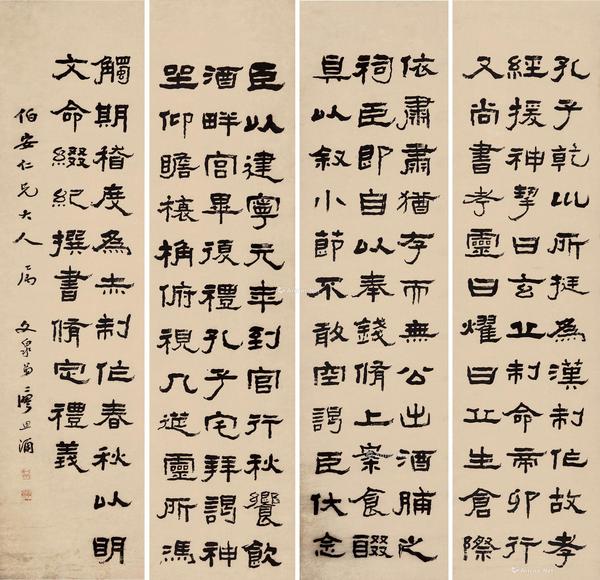 孔子乾巛所挺為漢制作故孝
經援神挈曰玄丘制命帝卯行
又尚書考靈曜曰丘生倉際
依肅肅猶存而無公出酒脯之
祠臣即自以奉錢脩上案食醊
具以敘小節不敢空謁臣伏念
臣以建寧元年到官行秋饗飲
酒畔宮畢復禮孔子宅拜謁神
坐仰瞻榱桷俯視几筵靈所馮
觸期稽度為赤制作春秋以明
文命綴紀撰書脩定禮義
伯安仁兄大人屬
文泉弟廖